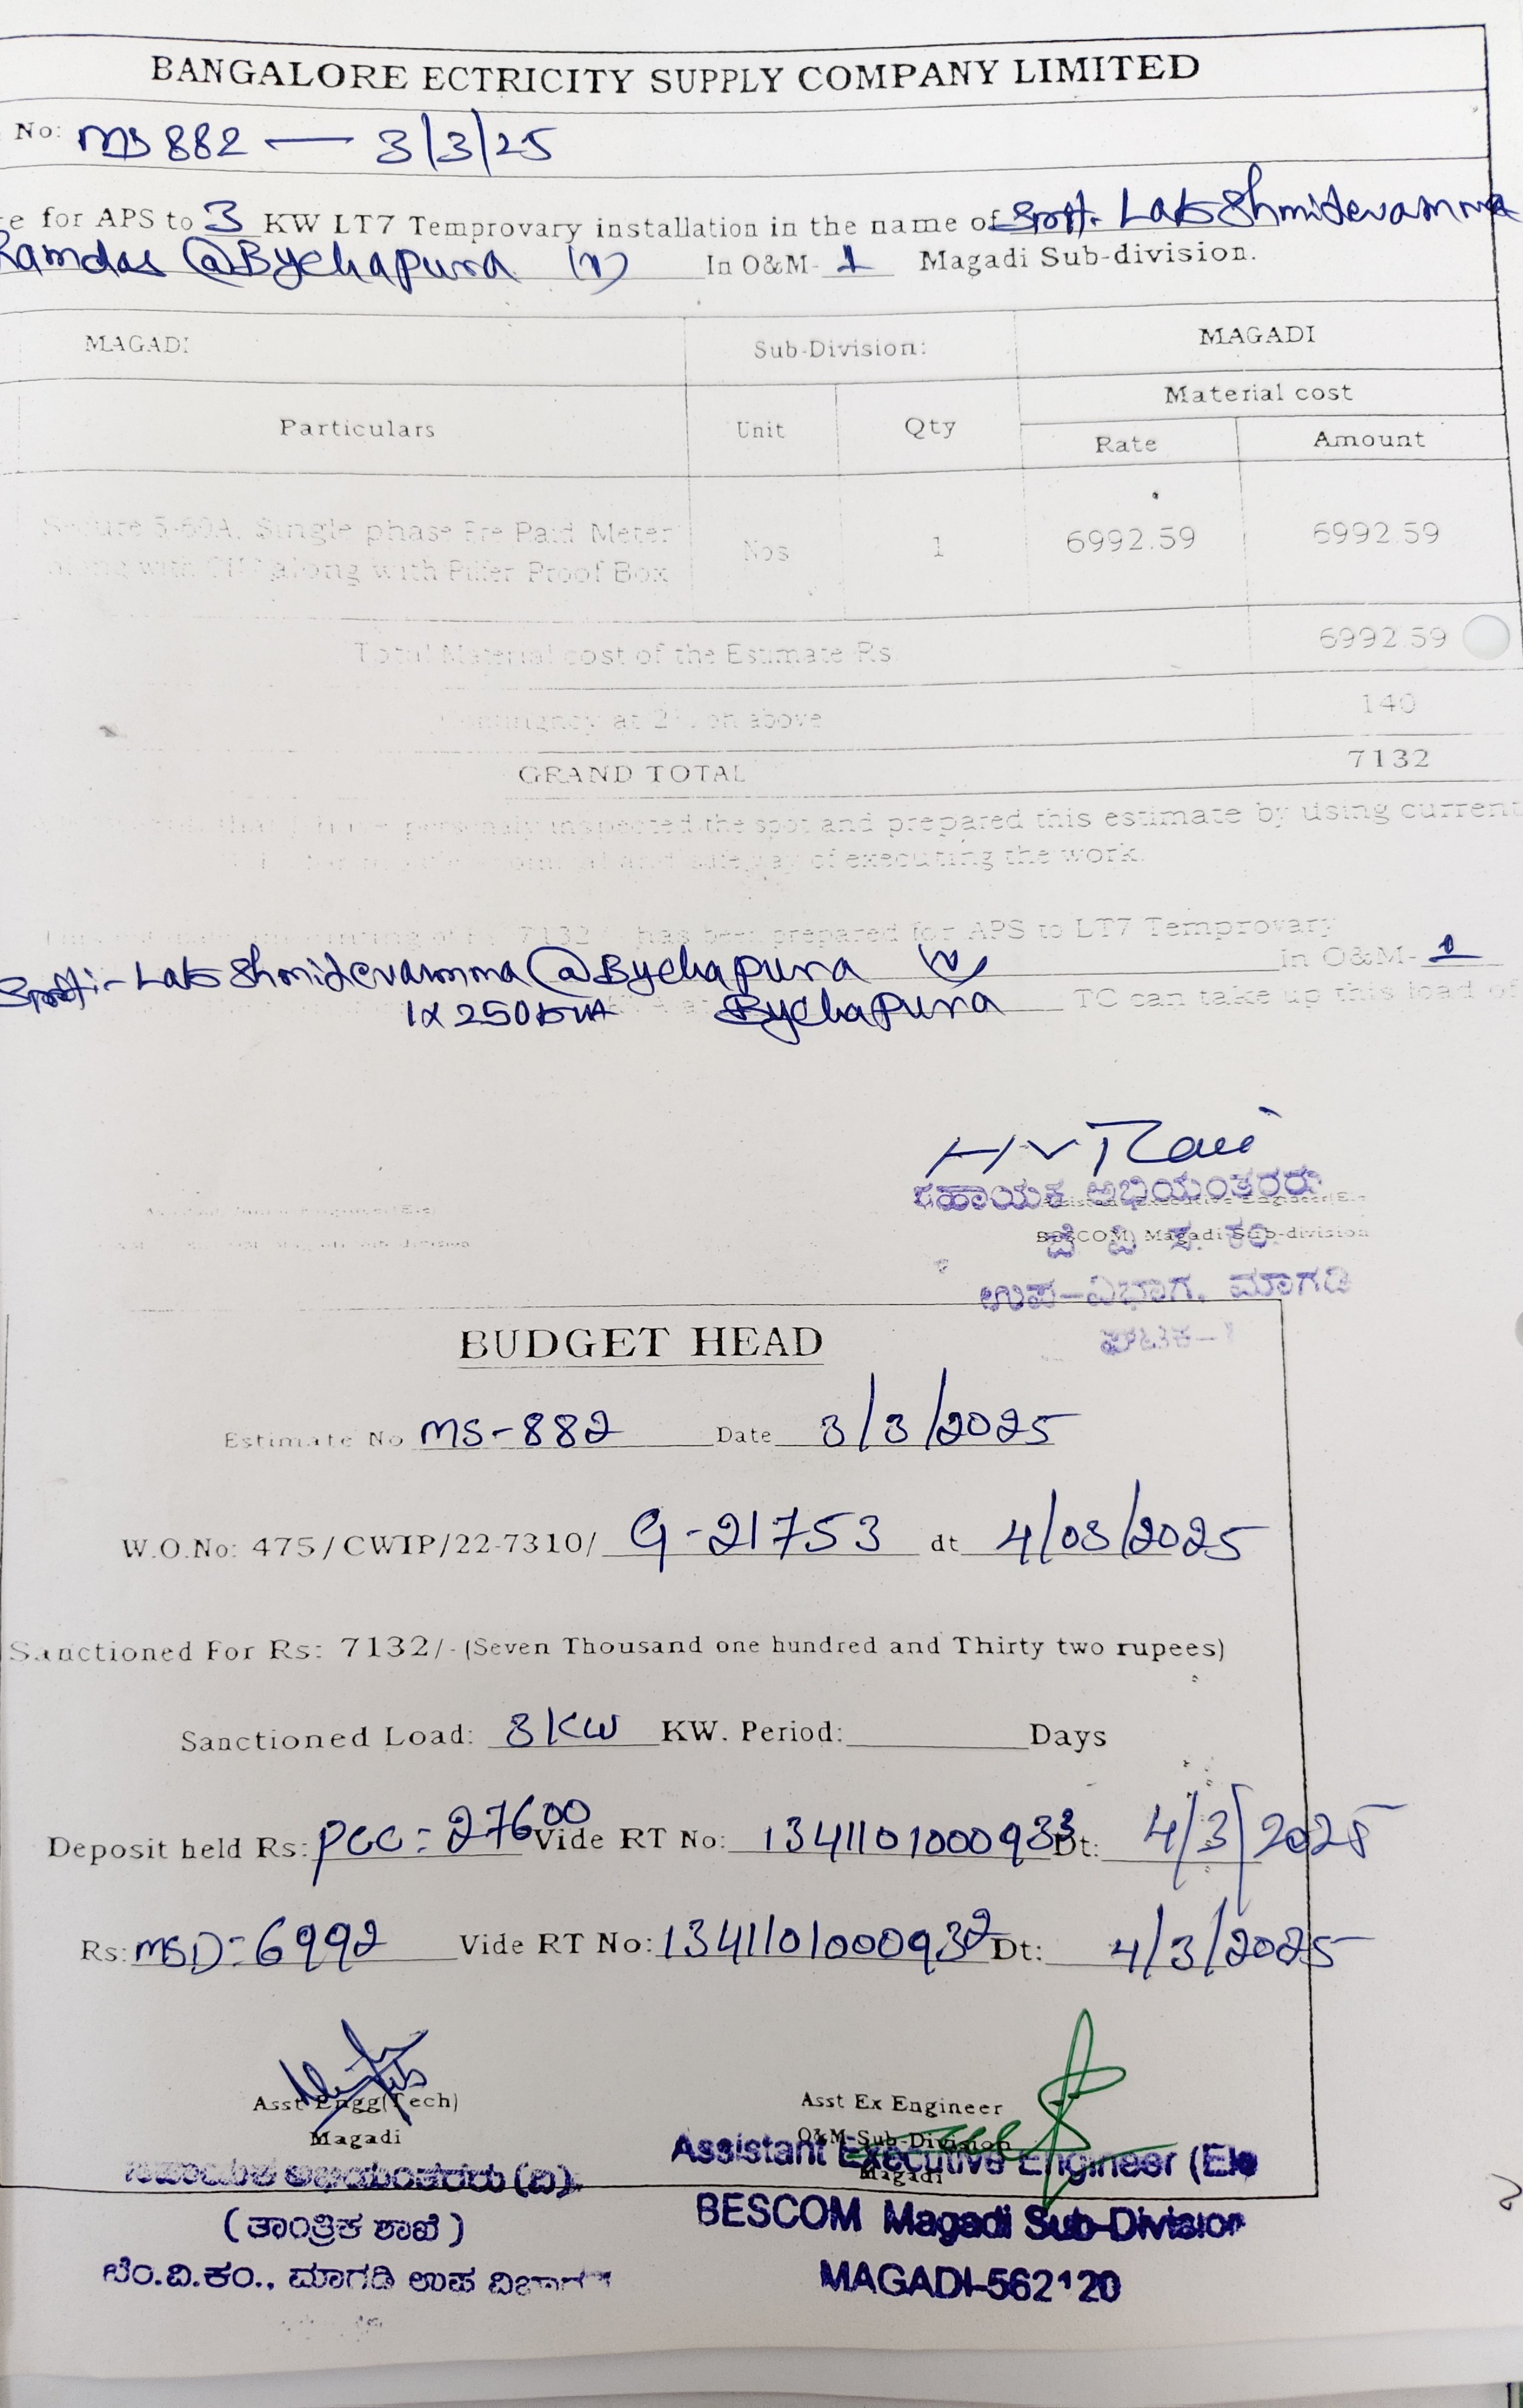 BANGALORE ECTRICITY SUPPLY COMPANY LIMITED
No: MS 882 — 3/3/25
e for APS to 3 KW LT7 Temprovary installation in the name of Smt. Lakshmidevamma
Ramdas @Bychapura (V) In O&M- 1 Magadi Sub-division.
MAGADI Sub-Division: MAGADI
Particulars Unit Qty Material cost
Rate Amount
Secure 5-60A, Single phase Pre Paid Meter
along with along with Pilfer Proof Box Nos 1 6992.59 6992.59
Total Material cost of the Estimate Rs 6992.59
at 2% on above 140
GRAND TOTAL 7132
personaly inspected the spot and prepared this estimate by using current
of executing the work.
7132 has been prepared for APS to LT7 Temprovary
Smt:- Lakshmidevamma @Bychapura (V) in O&M- 1
1x250kVA at Bychapura TC can take up this load of
H V Ravi
ಸಹಾಯಕ ಅಭಿಯಂತರರು
Assistant Executive Engineer(Ele
BESCOM, Magadi Sub-division
ಬೆ. ವಿ. ಸ. ಕಂ.
ಉಪ-ವಿಭಾಗ, ಮಾಗಡಿ
ಘಟಕ-1
BUDGET HEAD
Estimate No MS-882 Date 3/3/2025
W.O.No: 475/CWIP/22-7310/ G-21753 dt 4/03/2025
Sanctioned For Rs: 7132/- (Seven Thousand one hundred and Thirty two rupees)
Sanctioned Load: 3KW KW. Period: Days
Deposit held Rs: PCC: 27600 Vide RT No: 1341101000933 Dt: 4/3/2025
Rs: MSD: 6992 Vide RT No: 1341101000932 Dt: 4/3/2025
Asst Engg(Tech)
Magadi
ಸಹಾಯಕ ಅಭಿಯಂತರರು (ವಿ)
(ತಾಂತ್ರಿಕ ಶಾಖೆ)
ಬೆಂ.ವಿ.ಕಂ., ಮಾಗಡಿ ಉಪ ವಿಭಾಗ
Asst Ex Engineer
O&M-Sub-Division
Magadi
Assistant Executive Engineer (Ele
BESCOM Magadi Sub-Division
MAGADI-562120